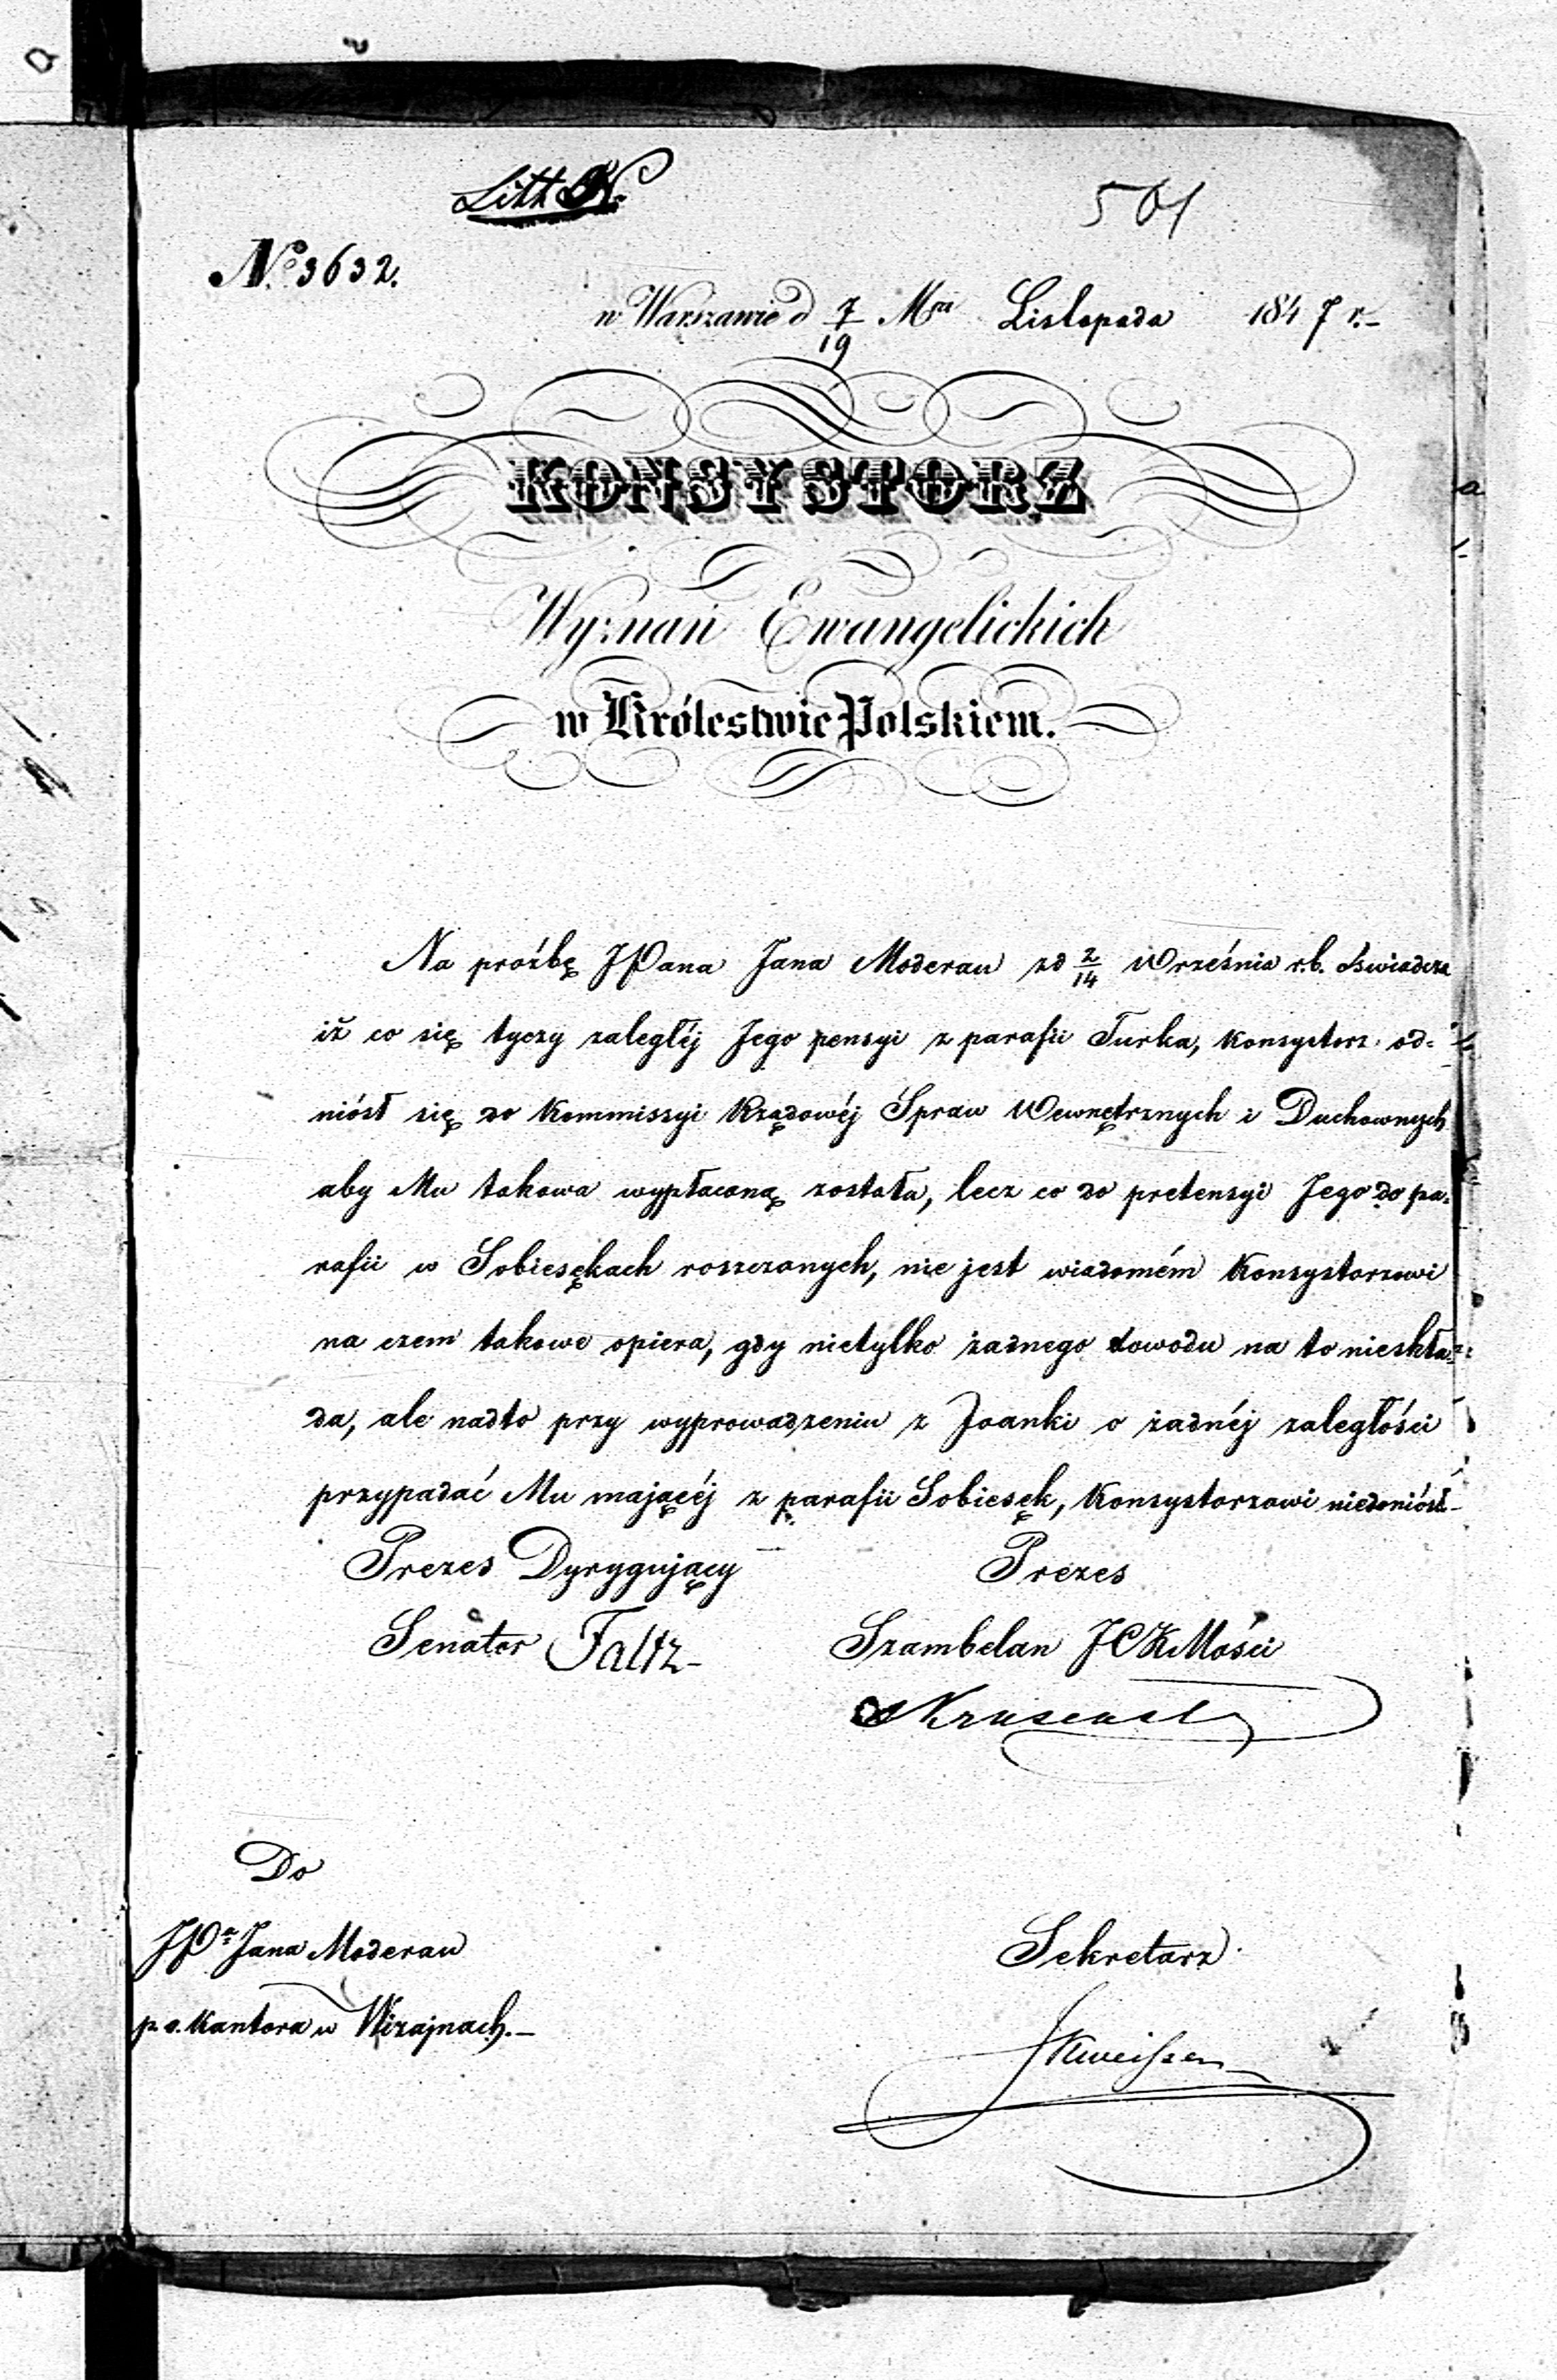 Litt N.
501
No 3632.
w Warszawie d 7/19 Mca Listopada 1847 r.-
KONSYSTORZ
Wyznań Ewangelickich
w Królestwie Polskiem.
Na prośbę JPana Jana Moderau zd 2/14 Września r.b. oświadcza
iż co się tyczy zaległéj Jego pensyi z parafii Turka, Konsystorz od=
niósł się do Kommissyi Rządowéj Spraw Wewnętrznych i Duchownych
aby Mu takowa wypłaconą została, lecz co do pretensyi Jego do pa=
rafii w Sobiesękach roszczonych, nie jest wiadomém Konsystorzowi
na czem takowe opiera, gdy nietylko żadnego dowodu na to nieskła=
da, ale nadto przy wyprowadzeniu z Joanki o żadnéj zaległości
przypadać Mu mającéj z parafii Sobiesęk, Konsystorzowi niedoniósł-
Prezes Dyrygujący
Prezes
Senator Faltz-
Szambelan JCKMości
Do
JPa Jana Moderau
Sekretarz
p.o. Kantora w Wizajnach.-